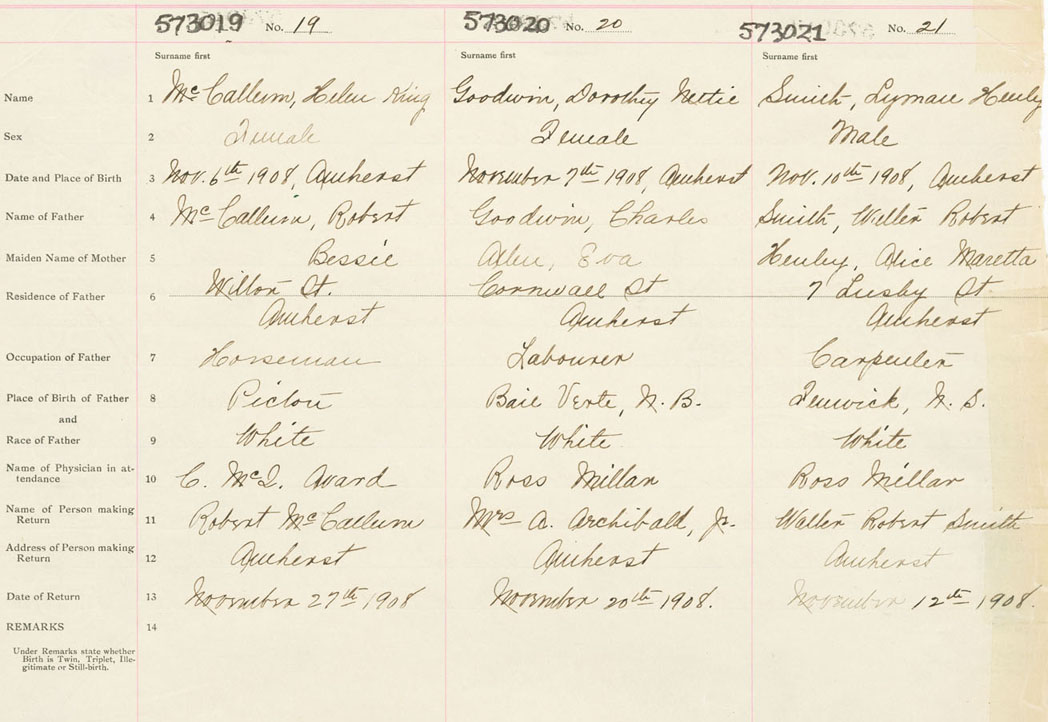 573019 No. 19 573020 No. 20 573021 No. 21
Surname first Surname first Surname first
Name 1 McCallum, Helen King Goodwin, Dorothy Nettie Smith, Lyman Henley
Sex 2 Female Female Male
Date and Place of Birth 3 Nov. 6th 1908, Amherst November 7th 1908, Amherst Nov. 10th 1908, Amherst
Name of Father 4 McCallum, Robert Goodwin, Charles Smith, Walter Robert
Maiden Name of Mother 5 Bessie Allen, Eva Henley, Alice Maretta
Residence of Father 6 St. Cornwall St 7 Lusby St.
Amherst Amherst Amherst
Occupation of Father 7 Horseman Labourer Carpenter
Place of Birth of Father 8 Pictou Baie Verte, N. B. Fenwick, N. S.
and
Race of Father 9 White White White
Name of Physician in at-
tendance 10 C. McQ. Avard Ross Millar Ross Millar
Name of Person making
Return 11 Robert McCallum Mrs A. Archibald, Jr. Walter Robert Smith
Address of Person making
Return 12 Amherst Amherst Amherst
Date of Return 13 November 27th 1908 November 20th 1908. November 12th 1908.
REMARKS 14
Under Remarks state whether
Birth is Twin, Triplet, Ille-
gitimate or Still-birth.